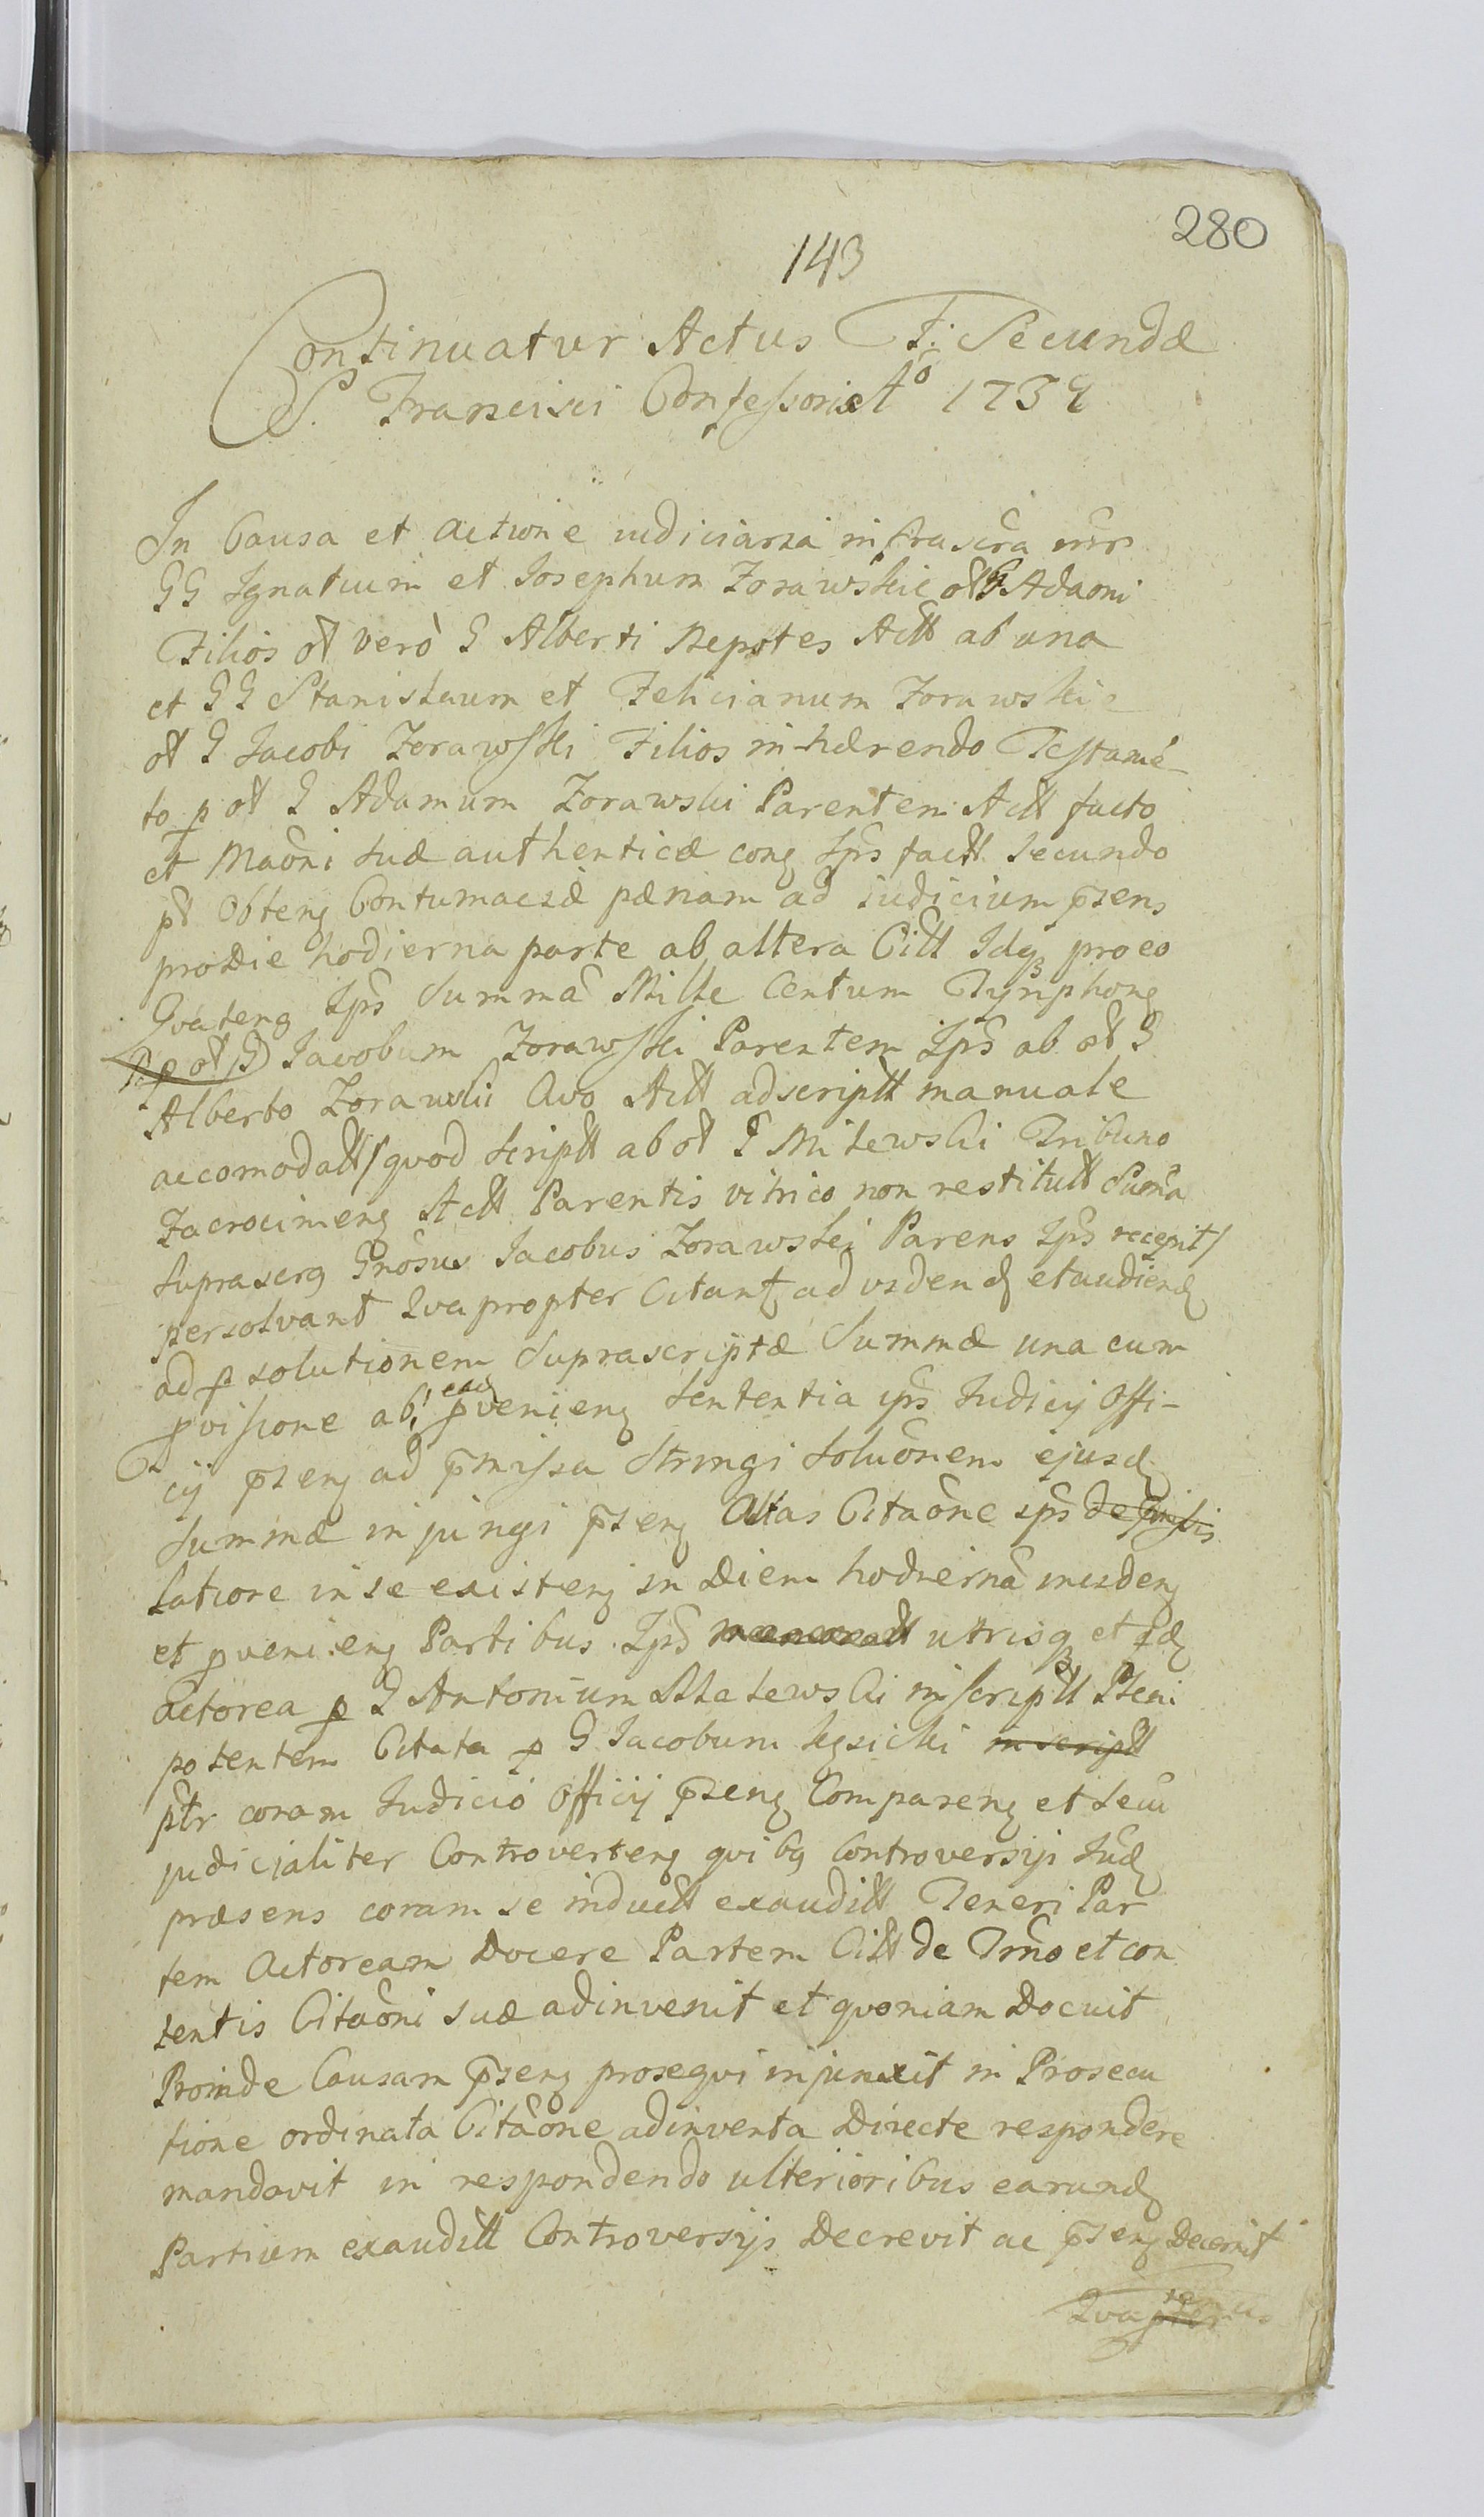 280
143
Continuatur Actus F: Secundæ
S. Francisci Confessoris Aº 1739
In Causa et Actione iudiciaria infrascra inter
GG Ignatium et Josephum Zorawskie olt G Adami
Filios olt verò G Alberti Nepotes Actt ab una
et GG Stanislaum et Felicianum Zorawskie
olt G Jacobi Zorawski Filios inhærendo Testamē
to p olt G Adamum Zorawski Parentem Actt facto
et Maōni suæ authenticæ cong Ips factt Secundo
pt Obteng Contumaciæ pænam ad iudicium p̄sens
pro Die hodierna parte ab altera Citt Idq3 pro eo
Qvateng Ips Summā Mille Centum Tynphong
p olt G Jacobum Zorawski Parentem Ips ab olt G
Alberto Zorawski Avo Actt ad scriptt manuale
accomodatt/ qvod scriptt ab olt G Milewski Tribuno
Zacrocimeng Actt Parentis vitrico non restitutt Sum̄a
suprascrg Gnōsus Jacobus Zorawski Parens Ips recepit/
persolvant Qvapropter Citant ad vidend et audiend
ad p solutionem Suprascriptæ Summæ una cum
pvisione ab! ead pvenieng Sententia ips Judicij Offi-
cij p̄seng ad p̄missa Stringi Soluōnem ejusd
Summæ injungi p̄seng Altas Citaōne ips
latiore in se existeng in Diem hodiernā incideng
et pvenieng Partibus Ips utrisq3 et qd
Actorea p G Antonium Malewski inscriptt Pleni
potentem Citata p G Jacobum Kęsicki in scriptt
ptr coram Judicio Officij p̄seng Compareng et secū
judicialiter Controverteng qvibg Controversijs Jud
præsens coram se inductt exauditt Teneri Par
tem Actoream Docere Partem Citt de Trmno et con
tentis Citaōni suæ adinvenit et qvoniam Docuit
Proinde Causam p̄seng prosegvi injunxit in Prosecu
tione ordinata Citaōne adinventa Directe respondere
mandavit in respondendo ulterioribus earund
Partium exauditt Controversijs Decrevit ac p̄seng Decernit